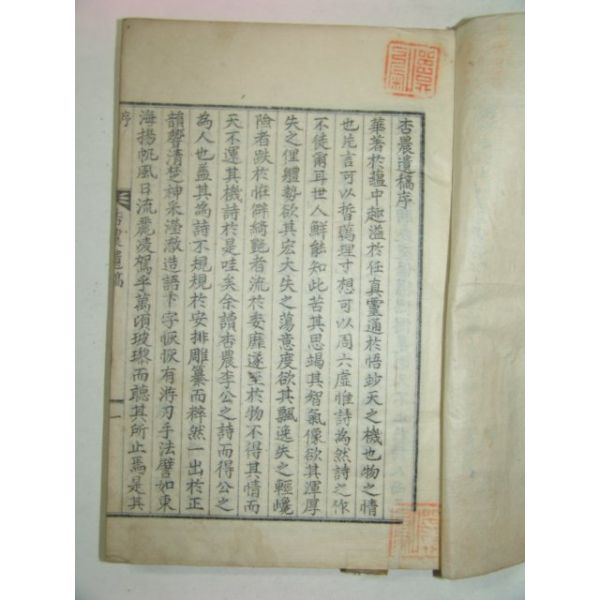 杏農遺稿序
華著於蘊中趣溢於任真靈通於悟玅天之機也物之情
也片言可以晢萬理寸想可以周六虛惟詩為然詩之作
不徒爾耳世人鮮能知此苦其思竭其智氣像欲其渾厚
失之俚體勢欲其宏大失之蕩意度欲其飄逸失之輕纔
險者跌於恠僻綺艶者流於委靡遂至於物不得其情而
天不運其機詩於是哇矣余讀杏農李公之詩而得公之
為人也盖其為詩不規規於安排雕纂而粹然一出於正
韻響清楚神采瀅澈造語下字恢恢有游刃手法譬如東
海揚帆風日流麗凌駕乎萬頃玻瓈而聽其所止焉是其
序 杏農遺稿 一